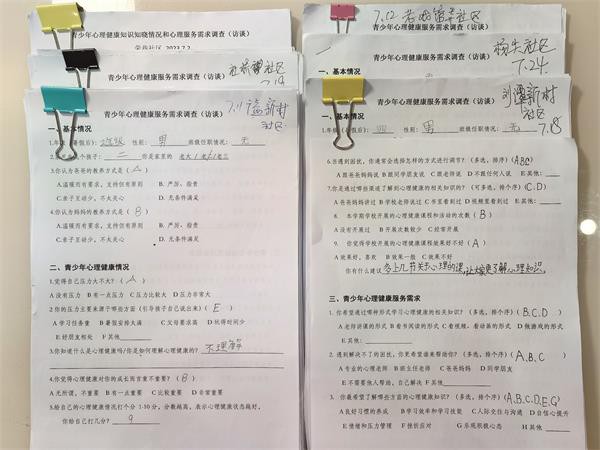 青少年心理健康知识知晓情况和心理服务需求调查（访谈）
2023.7.2
青少年心理健康服务需求调查（访谈）
7.19
青少年心理健康服务需求调查（访谈）
7.11
新村
社区
一、基本情况
性别：男 班级任职情况：无
二 你是家里的 老大/老二/老三
3.你认为爸爸的教养方式是（A）
A.温暖而有要求，支持但有原则 B.严厉，指责
C.亲子互动少，不大关心 D.无条件满足
4.你认为妈妈的教养方式是（B）
A.温暖而有要求，支持但有原则 B.严厉，指责
C.亲子互动少，不大关心 D.无条件满足
二、青少年心理健康情况
1.觉得自己压力大不大？（A）
A没有压力 B有一点压力 C压力比较大 D压力非常大
2.你的压力主要来源于哪些方面（引导孩子自己说出来）（E）
A学习任务重 B暑假安排太满 C父母要求高 D玩得时间少
E好朋友相处 F其他：
3.你知道什么是心理健康吗？/你是如何理解心理健康的？ 不理解
4.你觉得心理健康对你的成长而言重不重要？（B）
A无所谓，不重要 B有一点重要 C比较重要 D非常重要
5.给自己的心理健康情况打个分 1-10分，分数越高，表示心理健康状态越好，
你给自己打几分？ 9
7.12
社区
青少年心理健康服务需求调查（访谈）
社区
7.24
青少年心理健康服务需求调查（访谈）
一、基本情况
新村
社区
7.18
性别：男 班级任职情况：无
6.当遇到困扰，你通常会选择怎样的方式进行调节？（多选，排个序）（ABC）
A跟爸爸妈妈说 B跟同学朋友说 C跟老师说 D不跟任何人说 E其他：
7.你是通过哪些渠道了解到心理健康的相关知识？（可多选，排个序）（C.D）
A爸爸妈妈讲过 B学校老师说过 C书里看到过 D视频里看到过 E其他：
8. 本学期学校开展的心理健康课程和活动的次数（B）
A没有开展过 B开展次数较少 C经常开展
9. 你觉得学校开展的心理健康课程效果好不好（A）
A效果好，喜欢 B效果一般 C效果不好
你有什么建议 多上几节关于心理的课，让大家更了解心理知识。
三、青少年心理健康服务需求
1. 你希望通过哪种形式学习心理健康的相关知识？（多选，排个序）（B,C,D）
A老师讲课的形式 B看书阅读的形式 C看视频、看动画的形式 D做游戏的形式
E其他：
2. 遇到解决不了的困扰，你更希望谁来帮助你？（多选，排个序）（A,B,C）
A专业的心理老师 B班主任老师 C爸爸妈妈 D同学朋友
E不需要他人帮助，自己解决 F其他
3. 你最希望了解哪些方面的心理健康知识？（多选，排个序）（A,B,C,D,E,G）
A良好习惯的养成 B学习效率和学习技能 C人际交往与沟通 D自信心提升
E情绪和压力管理 F挫折应对 G乐观积极心态 H其他：